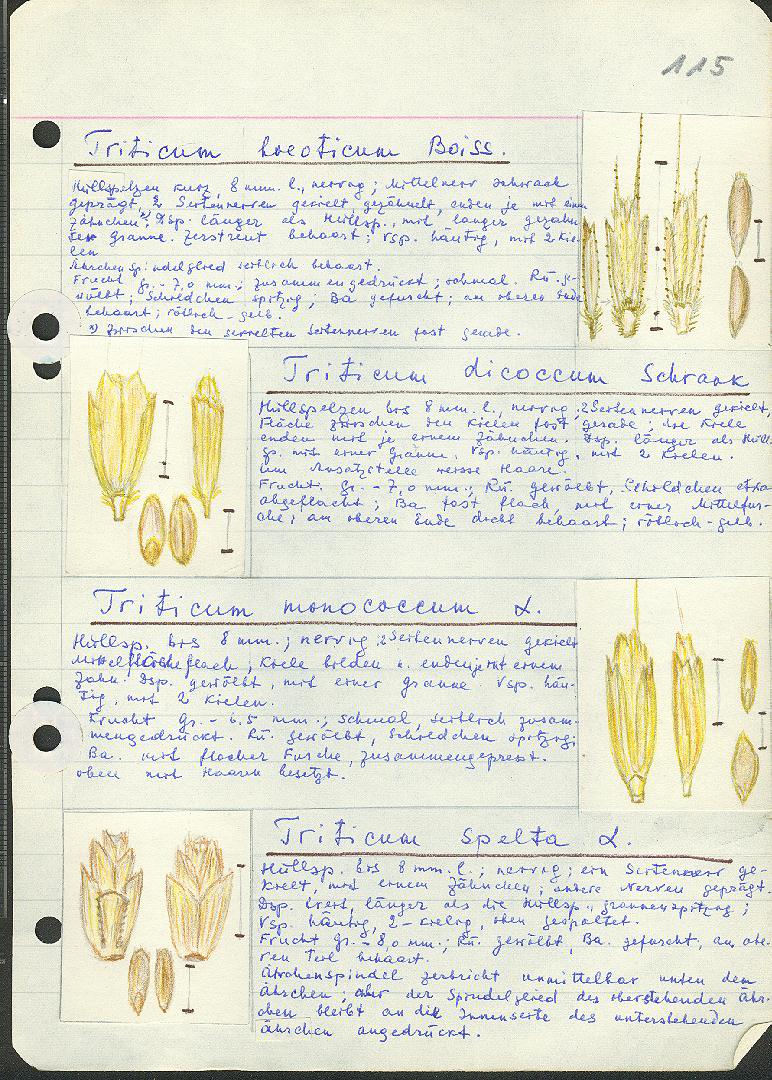 115
Triticum boeoticum Boiss.
Hüllspelzen kurz, 8 mm. l., nervig; Mittelnerv schwach
geprägt, 2 Seitennerven gekielt gezähnelt, enden je mit einem
Zähnchen; Dsp. länger als Hüllsp., mit langer gezähn-
ter Granne. Zerstreut behaart; Vsp. häutig, mit 2 Kie-
len
Ährchenspindelglied seitlich behaart.
Frucht Gr. - 7,0 mm.; zusammengedrückt; schmal. Rü. ge-
wölbt; Schildchen spitzig; Ba gefurcht; am oberen Ende
behaart; rötlich-gelb.
x) Zwischen den gekielten Seitennerven fast gerade.
Triticum dicoccum Schrank
Hüllspelzen bis 8 mm. l., nervig; 2 Seitennerven gekielt,
Fläche zwischen den Kielen fast gerade; die Kiele
enden mit je einem Zähnchen. Dsp. länger als Hüll-
sp. mit einer Granne. Vsp. häutig, mit 2 Kielen.
Um Ansatzstelle weisse Haare.
Frucht: Gr. - 7,0 mm.; Rü. gewölbt, Schildchen etwa
abgeflacht; Ba fast flach, mit einer Mittelfur-
che; am oberen Ende dicht behaart; rötlich-gelb.
Triticum monococcum L.
Hüllsp. bis 8 mm.; nervig; 2 Seitennerven gekielt
Mittelfläche flach; Kiele bilden u. enden je mit einem
Zahn. Dsp. gewölbt, mit einer Granne Vsp. häu-
tig, mit 2 Kielen.
Frucht Gr. - 6,5 mm.; schmal, seitlich zusam-
mengedrückt. Rü. gewölbt, Schildchen spitzig;
Ba. mit flacher Furche, zusammengepresst.
oben mit Haaren besetzt.
Triticum spelta L.
Hüllsp. bis 8 mm. l.; nervig; ein Seitennerv ge-
kielt, mit einem Zähnchen; andere Nerven geprägt.
Dsp. breit, länger als die Hüllsp., grannenspitzig;
Vsp. häutig, 2-kielig, oben gespaltet.
Frucht Gr. - 8,0 mm.; Rü. gewölbt, Ba. gefurcht, am obe-
ren Teil behaart.
Ährchenspindel zerbricht unmittelbar unten dem
Ährchen; aber der Spindelglied des oberstehenden Ähr-
chen bleibt an die Innenseite des untenstehenden
Ährchen angedrückt.